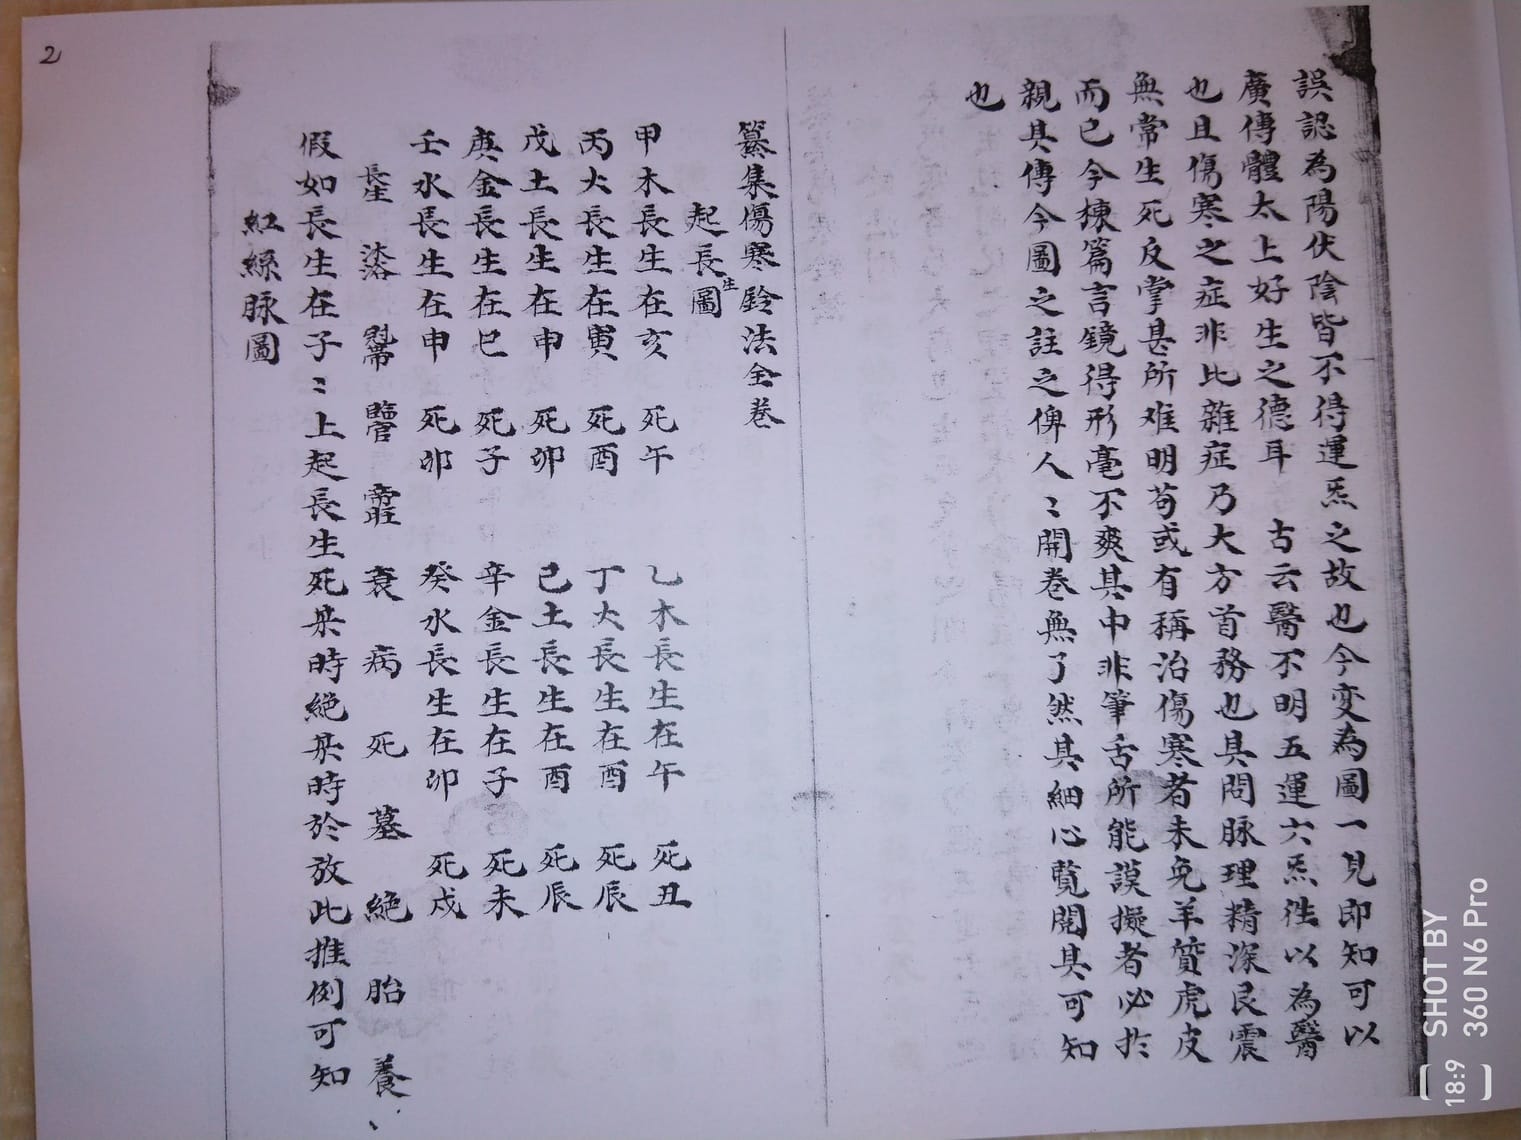 2
誤認為陽伏陰皆不得運炁之故也今变為圖一見即知可以
廣傳體太上好生之德耳 古云醫不明五運六炁徃以為醫
也且傷寒之症非比雜症乃大方首務也其問脉理精深艮震
無常生死反掌甚所难明苟或有稱治傷寒者未免羊質虎皮
而已今棟篇言鏡得形毫不爽其中非筆舌所能謨擬者必扵
親其傳今圖之註之俾人〻開卷無了然其細心覽閱其可知
也
纂集傷寒鈴法全巻
起長生圖
甲木長生在亥 死午 乙木長生在午 死丑
丙火長生在寅 死酉 丁火長生在酉 死辰
戊土長生在申 死卯 己土長生在酉 死辰
庚金長生在巳 死子 辛金長生在子 死未
壬水長生在申 死卯 癸水長生在卯 死戍
長生 沐浴 冠帶 臨官 帝旺 衰 病 死 墓 絶 胎 養
假如長生在子〻上起長生死某時絶某時於放此推例可知
紅絲脉圖
SHOT BY
360 N6 Pro
18:9